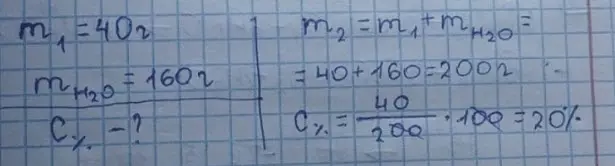 m₁ = 40г
m_H2O = 160г
C% - ?
m₂ = m₁ + m_H2O =
= 40 + 160 = 200г
C% = 40/200 · 100 = 20%